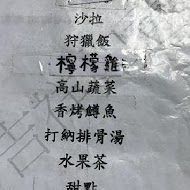 沙拉
狩獵飯
檸檬雞
高山蔬菜
香烤鱒魚
打納排骨湯
水果茶
甜點